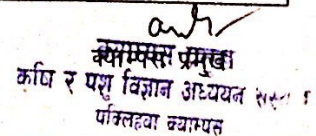 क्याम्पस प्रमुख
कृषि र पशु विज्ञान अध्ययन संस्थान
पक्लिहवा क्याम्पस